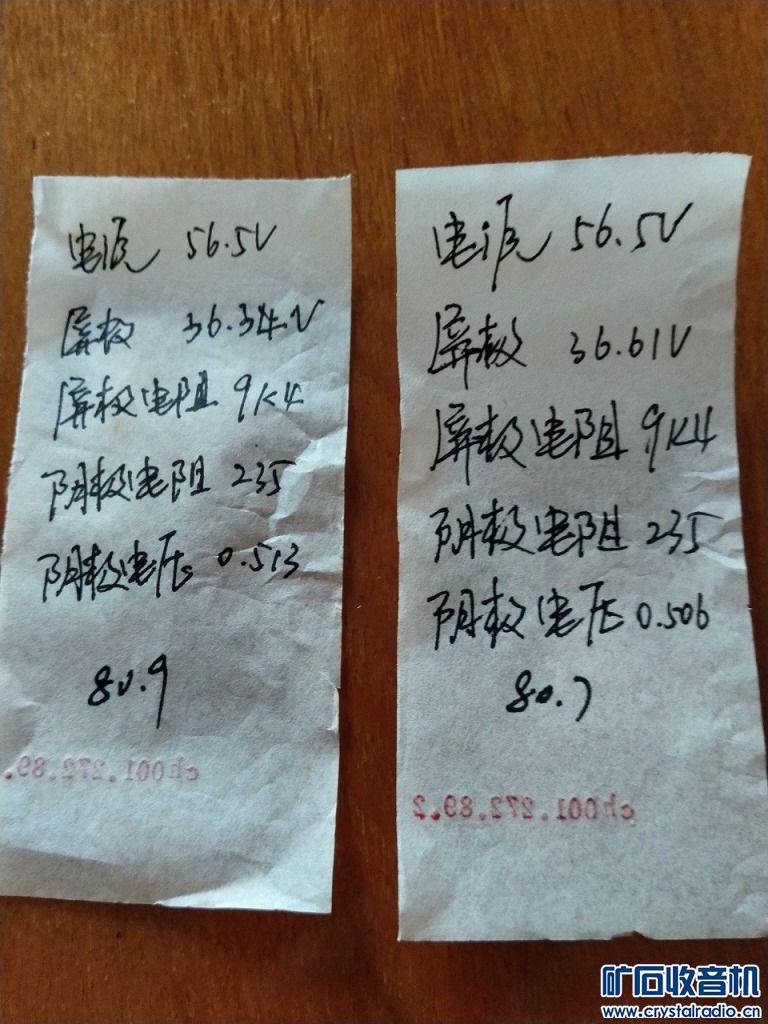 电源 56.5V
屏极 36.34V
屏极电阻 9K4
阴极电阻 235
阴极电压 0.513
80.9
ch001.272.89.
电源 56.5V
屏极 36.61V
屏极电阻 9K4
阴极电阻 235
阴极电压 0.506
80.7
ch001.272.89.2
矿石收音机
www.crystalradio.cn